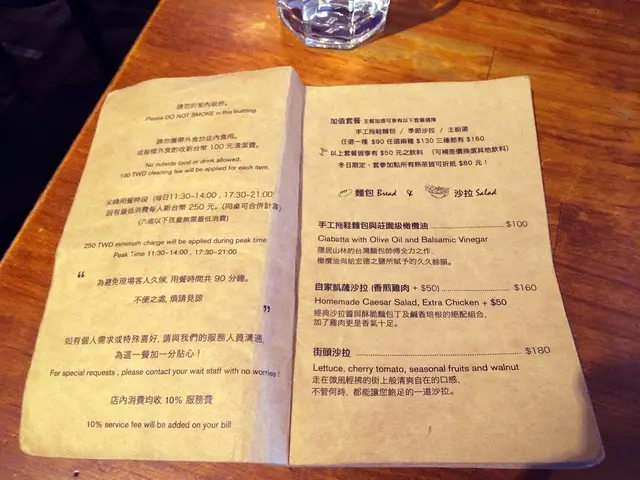 請勿於室內吸菸。
Please DO NOT SMOKE in this building.
請勿攜帶外食於店內食用。
或每樣外食酌收新台幣 100 元清潔費。
No outside food or drink allowed.
100 TWD cleaning fee will be applied for each item.
尖峰用餐時段 (每日11:30~14:00 , 17:30~21:00)
設有最低消費每人新台幣 250 元。(同桌可合併計算)
(六歲以下孩童無需最低消費)
250 TWD minimum charge will be applied during peak time.
Peak Time 11:30~14:00 , 17:30~21:00
“
為避免現場客人久候, 用餐時間共 90 分鐘。
不便之處, 煩請見諒
”
如有個人需求或特殊喜好, 請與我們的服務人員溝通,
為這一餐加一分貼心！
For special requests , please contact your wait staff with no worries !
店內消費均收 10% 服務費
10% service fee will be added on your bill
加值套餐 主餐加值可享有以下套餐選擇
手工拖鞋麵包 / 季節沙拉 / 主廚湯
任選一種 $90 任選兩種 $130 三種都有 $160
以上套餐皆享有 $50 元之飲料 (可補差價換選其他飲料)
冬日限定、套參加點所有熱茶皆可折抵 $80 元！
麵包 Bread & 沙拉 Salad
手工拖鞋麵包與莊園級橄欖油 $100
Ciabatta with Olive Oil and Balsamic Vinegar
隱居山林的台灣麵包師傅全力之作,
橄欖油與給宏德之鹽所賦予的久久餘韻。
自家凱薩沙拉 (香煎雞肉 + $50) $160
Homemade Caesar Salad, Extra Chicken + $50
經典沙拉醬與酥脆麵包丁及鹹香培根的絕配組合,
加了雞肉更是香氣十足。
街頭沙拉 $180
Lettuce, cherry tomato, seasonal fruits and walnut
走在微風輕拂的街上般清爽自在的口感,
不管何時, 都能讓您飽足的一道沙拉。